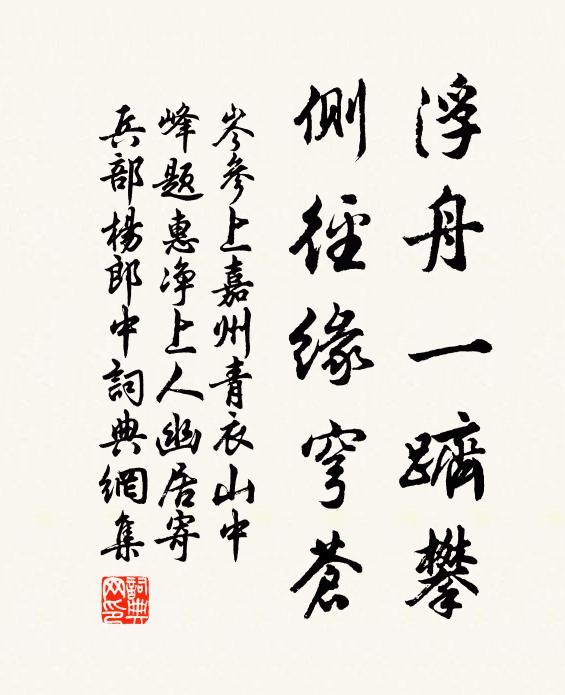 浮舟一躋攀
側徑緣穹蒼
岑參上嘉州青衣山中
峰題惠净上人幽居寄
兵部楊郎中詞典網集
詞典網印